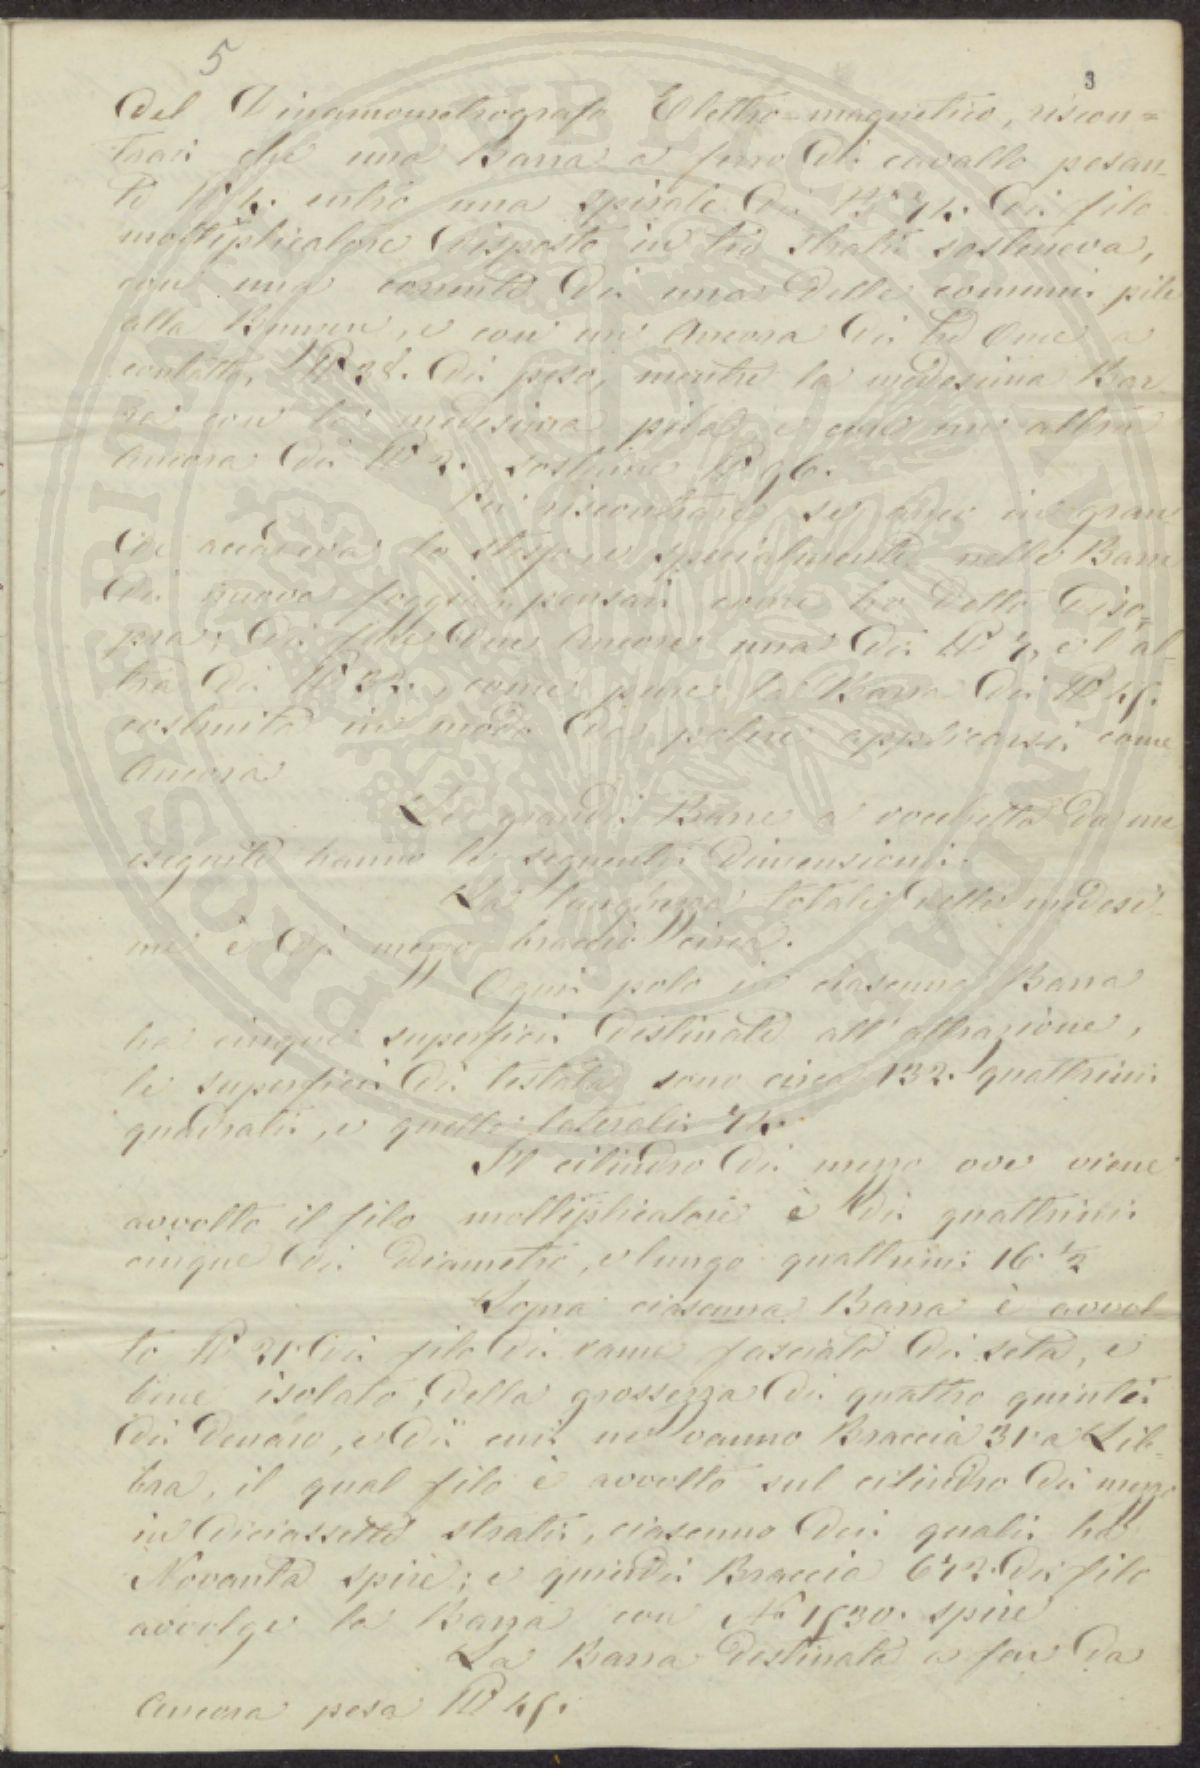 5
3
Del Dinamometrografo Elettro=magnetico, riscon=
trai che una Barra a ferro di cavallo pesan-
te ℔ 4. entro una spirale di ℔ 4. di filo
moltiplicatore disposto in tre strati sosteneva,
con una corrente di una delle comuni pile
alla Bunsen, e con un' Ancora di tre Once a
contatto, ℔ 38. di peso, mentre la medesima Bar-
ra con la medesima pila, e con un' altra
Ancora di ℔ 2. sostenne ℔ 96.
Per riscontrare se anco in gran-
de accadeva lo stesso, e specialmente nelle Barre
di nuova foggia, pensai come ho detto diso-
pra, di fare due Ancore una di ℔ 7, e l'al-
tra di ℔ 32., come pure la Barra di ℔ 45.
costruita in modo da potere applicarsi come
Ancora
Le grandi Barre a rocchetto da me
eseguite hanno le seguenti dimensioni.
La lunghezza totale delle medesi-
me è di mezzo braccio circa.
Ogni polo in ciascuna Barra
ha cinque superfici destinate all'attrazione,
le superfici di testata sono circa 132. quattrini
quadrati, e quelle laterali 74.
Il cilindro di mezzo ove viene
avvolto il filo moltiplicatore è di quattrini
cinque di diametro, e lungo quattrini 16 ½
Sopra ciascuna Barra è avvol-
to ℔ 21 di filo di rame fasciato di seta, e
bene isolato, della grossezza di quattro quinti
di denaro, e di cui ne vanno Braccia 31 a Lib-
bra, il qual filo è avvolto sul cilindro di mezzo
in diciassette strati, ciascuno dei quali ha
Novanta spire; e quindi Braccia 672. di filo
avvolge la Barra con N.° 1530. spire
La Barra destinata a far da
Ancora pesa ℔ 45.